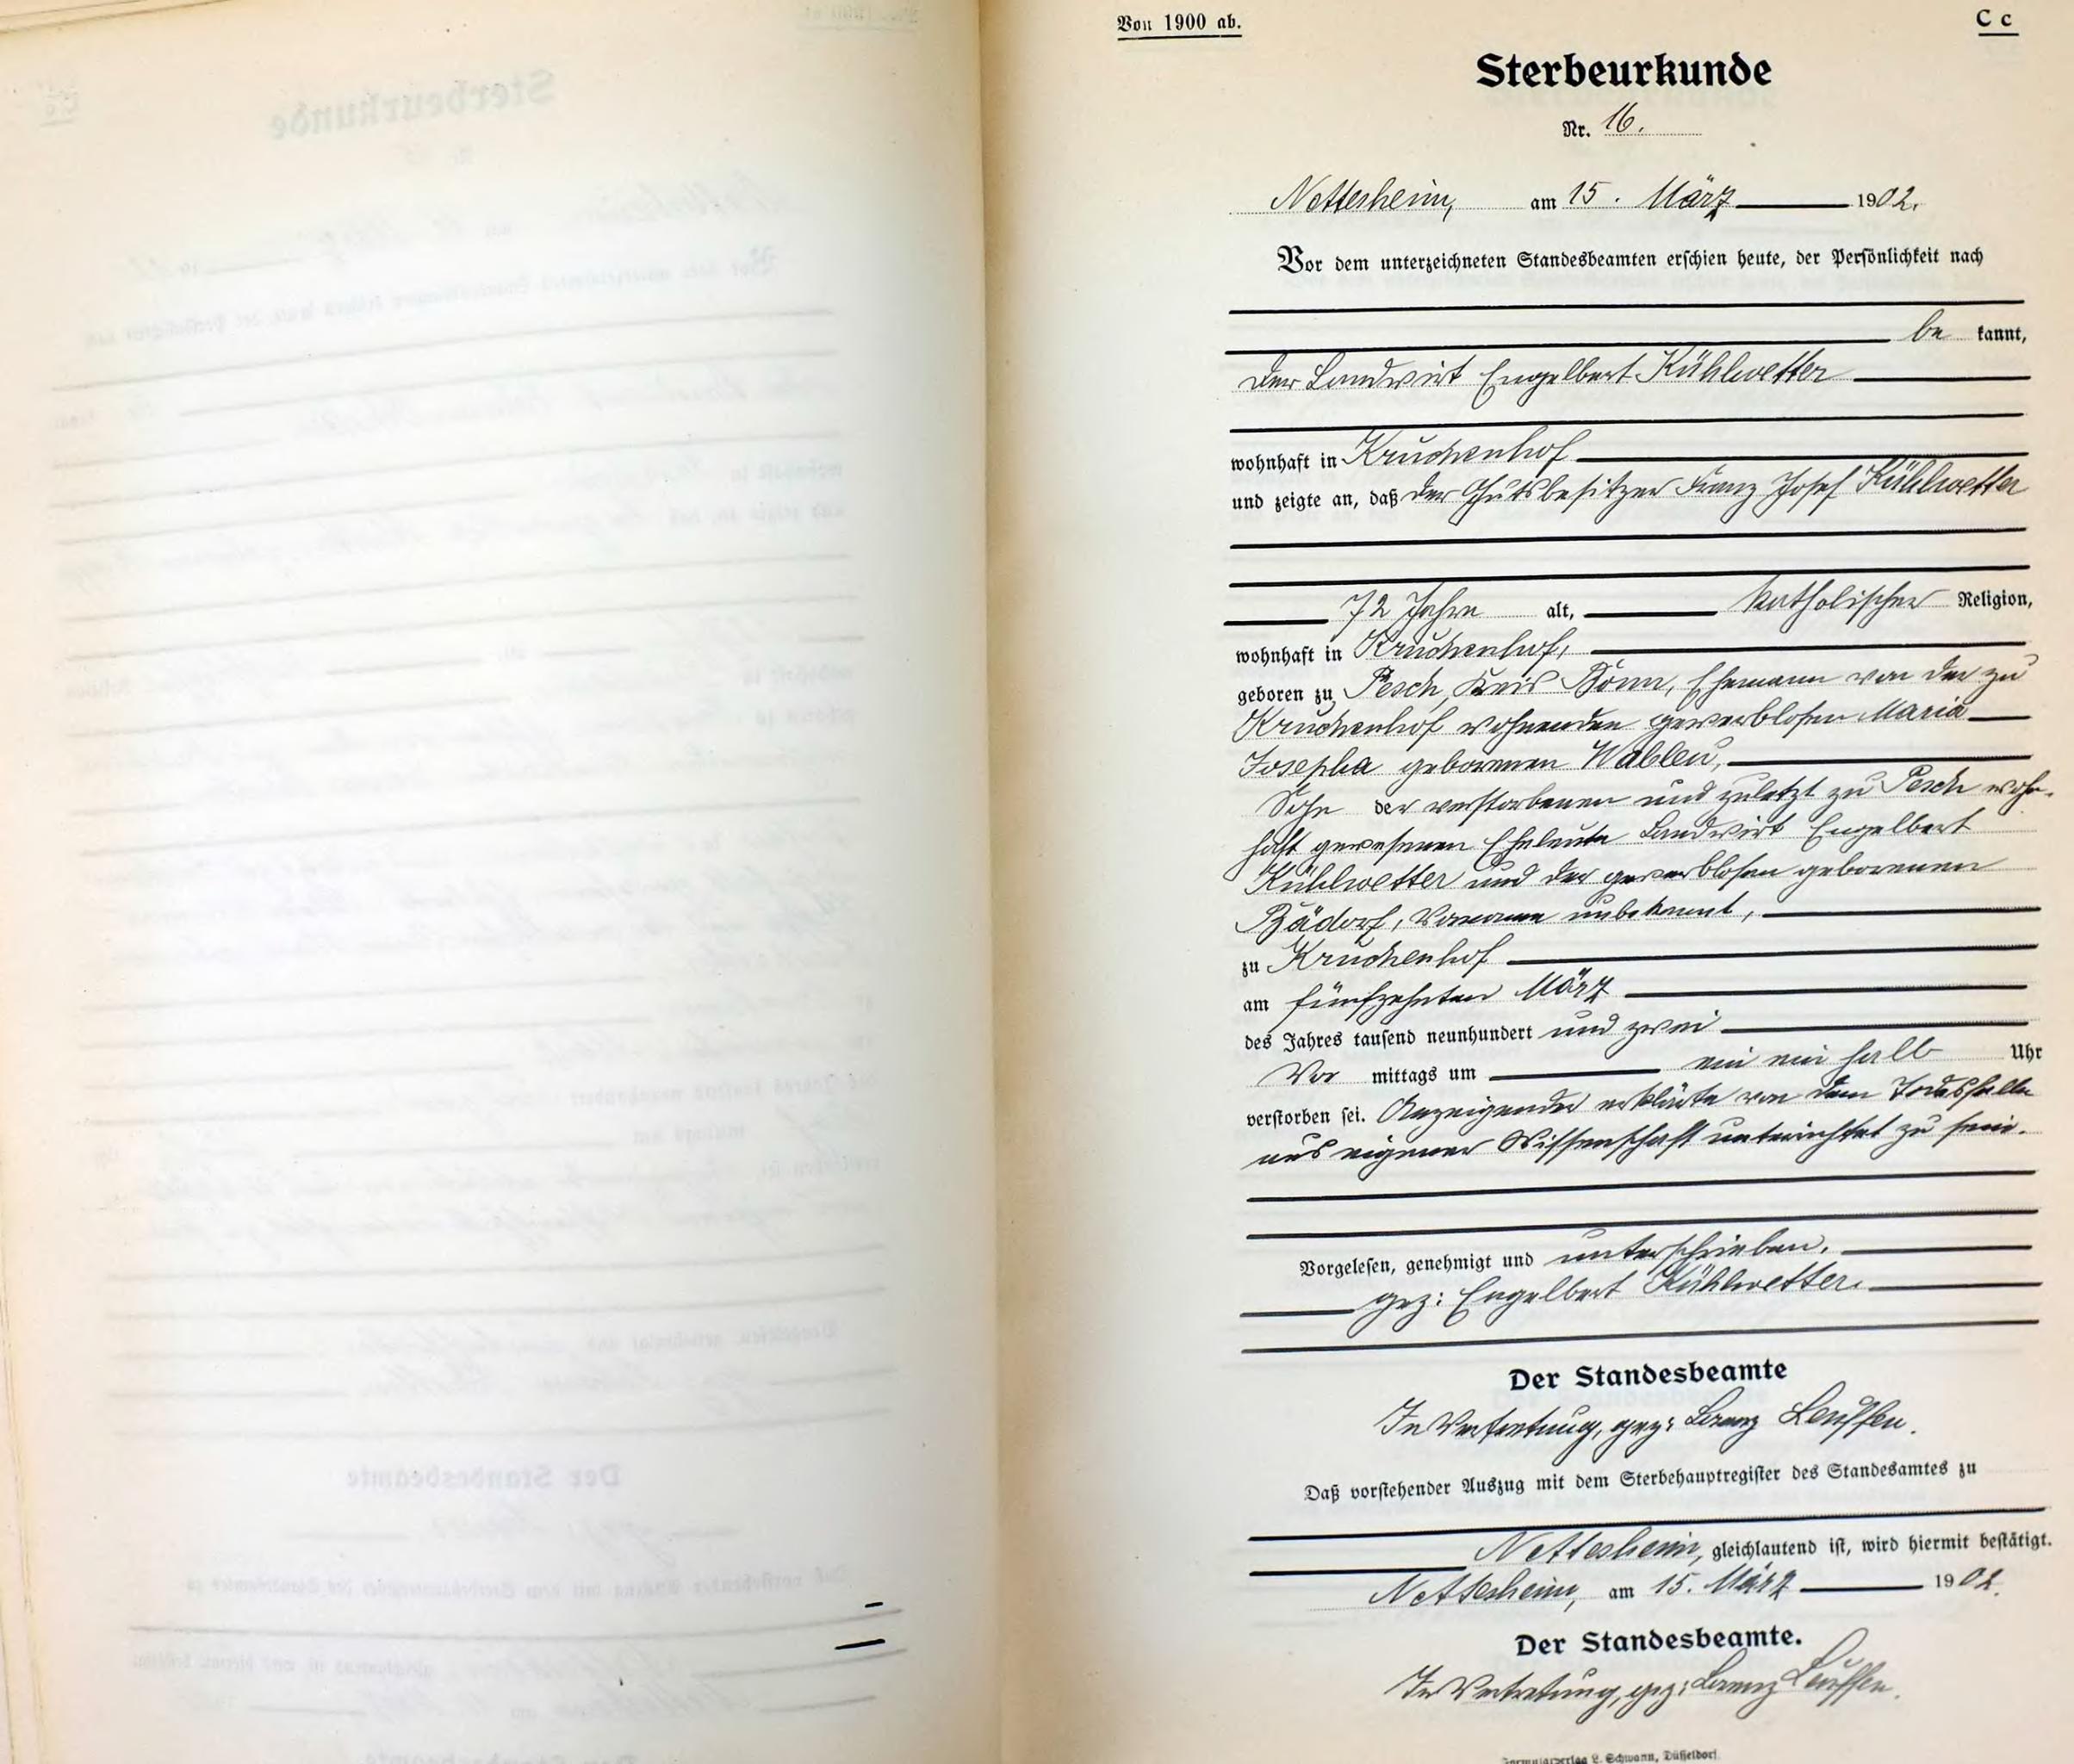 Von 1900 ab.
C c
Sterbeurkunde
Nr. 16.
Nettersheim, am 15. März 1902.
Vor dem unterzeichneten Standesbeamten erschien heute, der Persönlichkeit nach
be kannt,
der Landwirt Engelbert Kühlwetter
wohnhaft in Kruchenhof
und zeigte an, daß der Gutsbesitzer Franz Josef Kühlwetter
72 Jahre alt, katholischer Religion,
wohnhaft in Kruchenhof,
geboren zu Pesch, Kreis Bonn, Ehemann von der zu
Kruchenhof wohnenden gewerblosen Maria
Josepha geborenen Wableu,
Sohn der verstorbenen und zuletzt zu Pesch wohn-
haft gewesenen Eheleute Landwirt Engelbert
Kühlwetter und der gewerblosen geborenen
Bädorf, Vorname unbekannt,
zu Kruchenhof
am fünfzehnten März
des Jahres tausend neunhundert und zwei
Vor mittags um ein ein halb Uhr
verstorben sei. Anzeigender erklärte von dem Todesfalle
aus eigener Wissenschaft unterrichtet zu sein.
Vorgelesen, genehmigt und unterschrieben.
gez: Engelbert Kühlwetter.
Der Standesbeamte
In Vertretung, gez: Lorenz Leuffen.
Daß vorstehender Auszug mit dem Sterbehauptregister des Standesamtes zu
Nettersheim, gleichlautend ist, wird hiermit bestätigt.
Nettersheim, am 15. März 1902.
Der Standesbeamte.
In Vertretung, gez: Lorenz Leuffen.
Formularverlag L. Schwann, Düsseldorf.